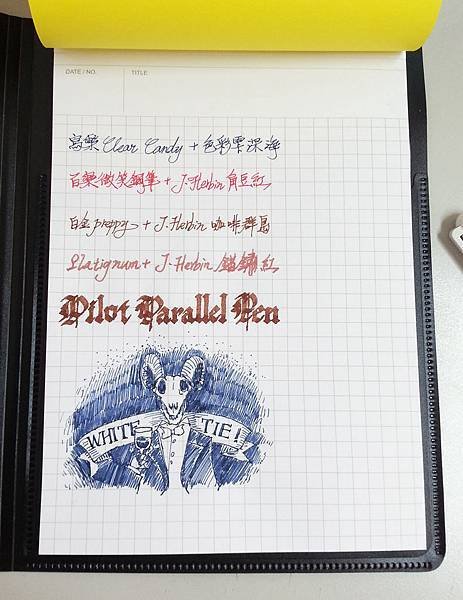 DATE / NO. TITLE
寫樂 Clear Candy + 色彩雫深海
百樂微笑鋼筆 + J. Herbin 角豆紅
白金 preppy + J. Herbin 咖啡群島
Platignum + J. Herbin 錨鏽紅
Pilot Parallel Pen
WHITE TIE!